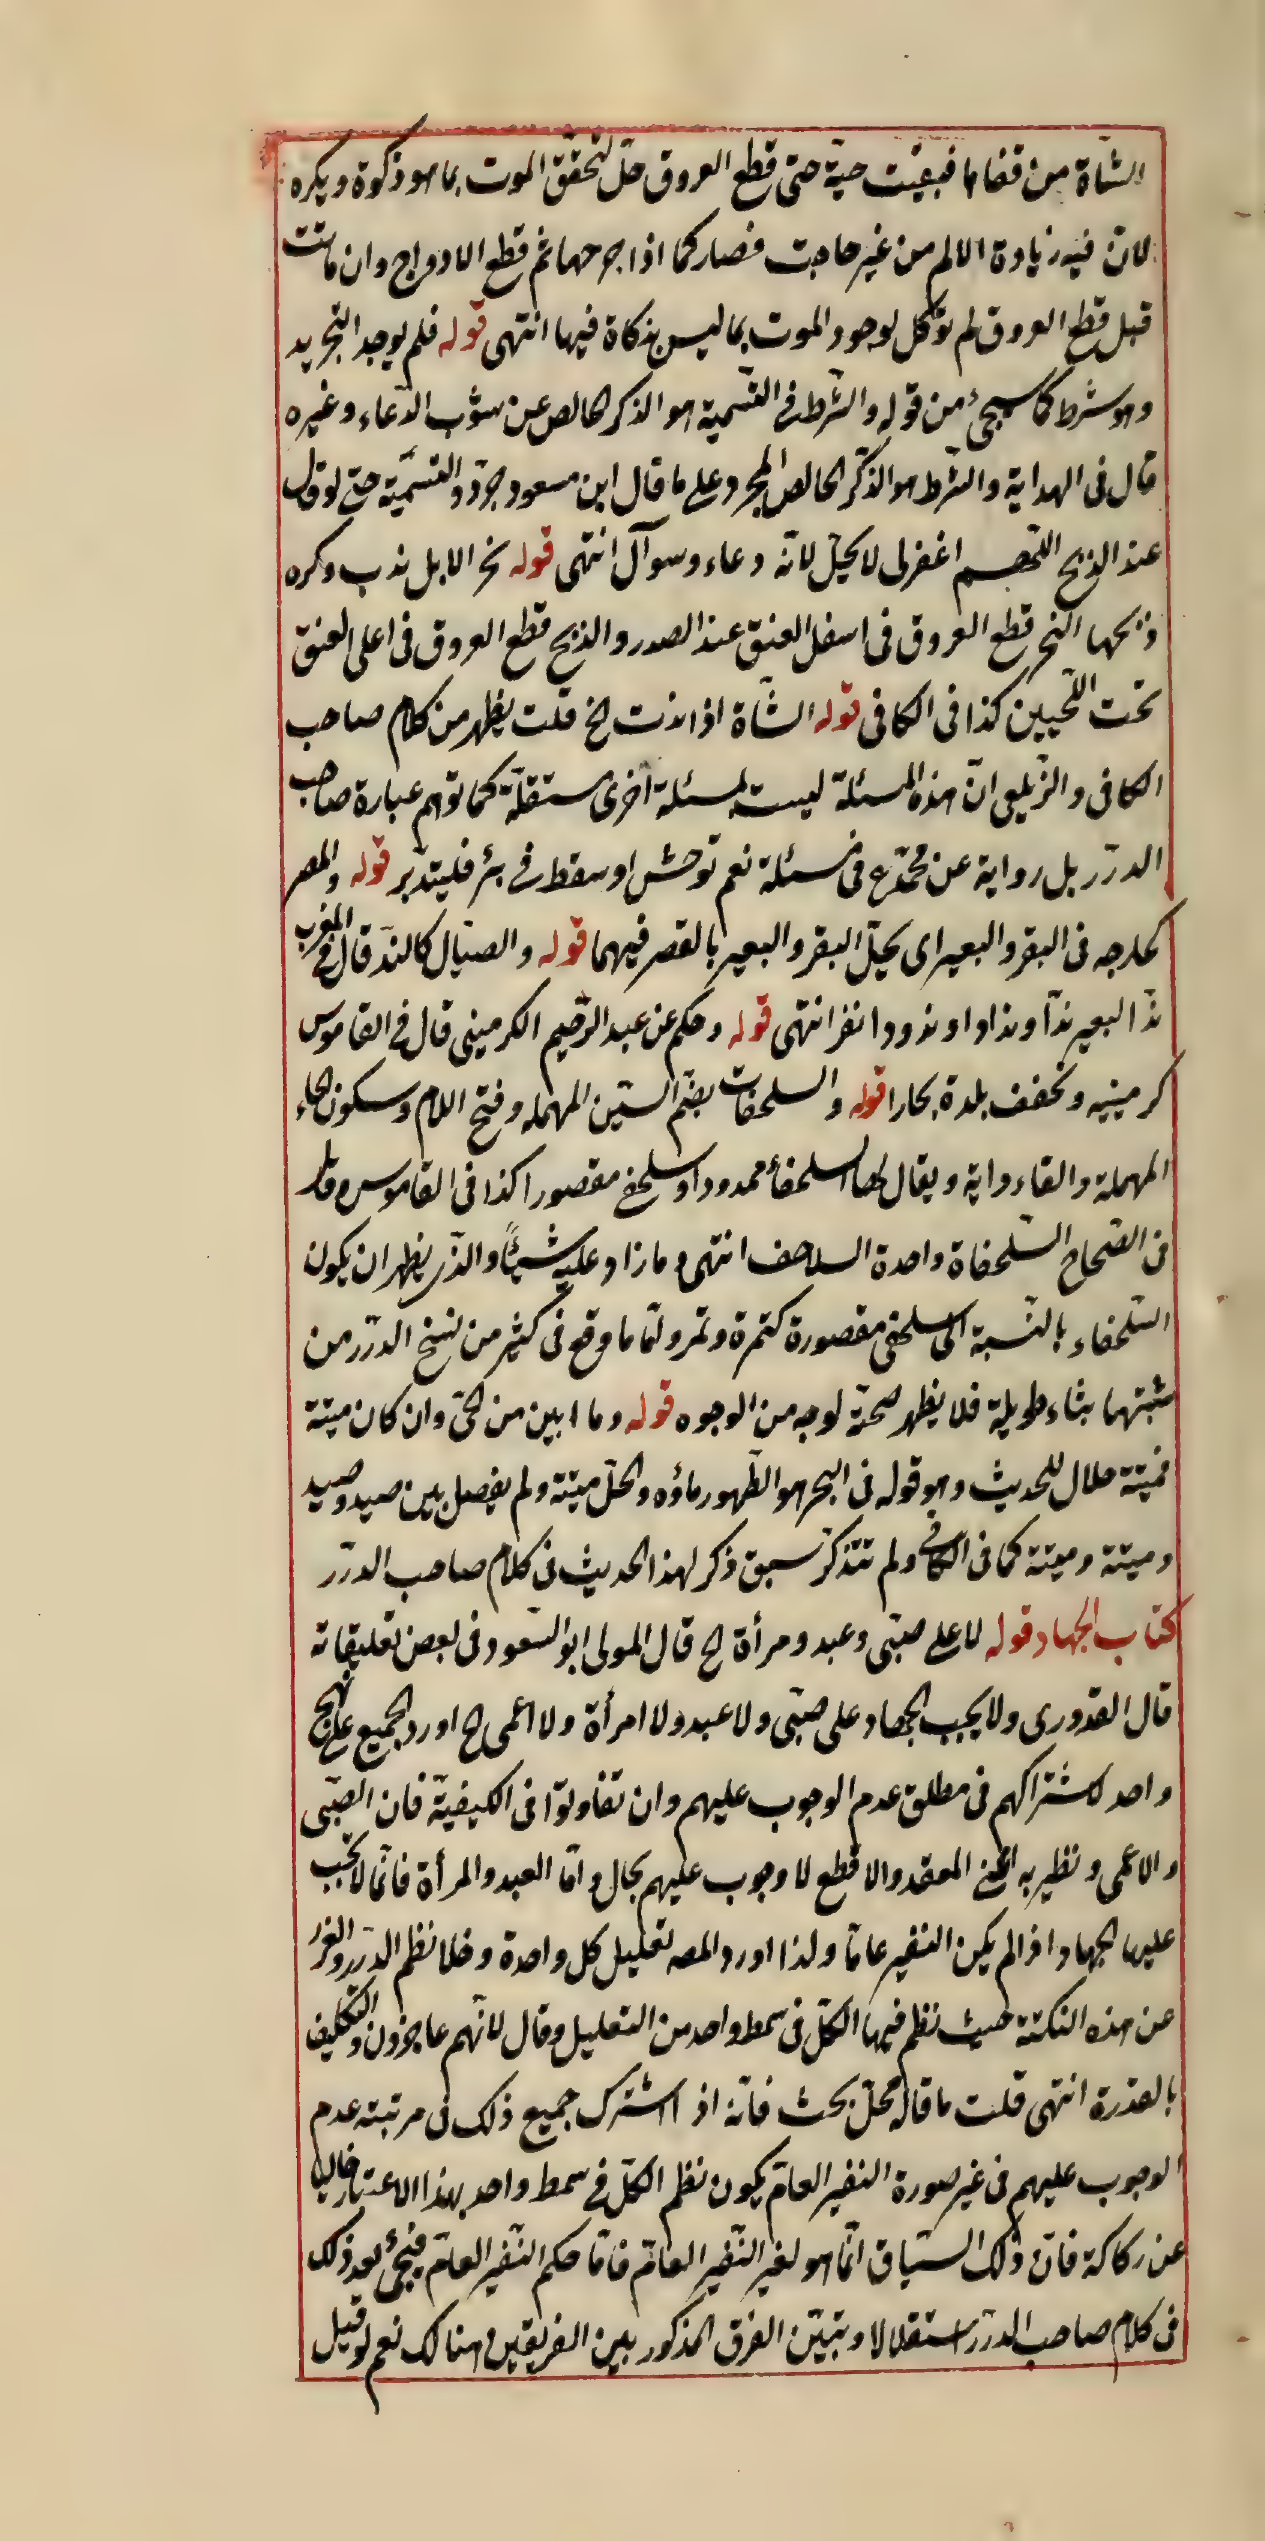 الشاة من قفاها فبقيت حية حتى قطع العروق حل لتحقق الموت بما هو ذكوة ويكره
لان فيه زيادة الالم من غير حاجت فصار كما اذا جرحها ثم قطع الاوداج وان ماتت
قبل قطع العروق لم تؤكل لوجود الموت بما ليس بذكاة فيها انتهى قوله فلم يوجد التجريد
وهو شرط كما سيجئ من قوله والشرط في التسمية هو الذكر الخالص عن شوب الدعاء وغيره
قال في الهداية والشرط هو الذكر الخالص المجرد على ما قال ابن مسعود جردوا التسمية حتى لو قال
عند الذبح اللهم اغفر لى لا يحل لانه دعاء وسوآل انتهى قوله نحر الابل ندب وكره
ذبحها النحر قطع العروق في اسفل العنق عند الصدر والذبح قطع العروق في اعلى العنق
تحت اللحيين كذا في الكافي قوله الشاة اذا ندت الخ قلت يظهر من كلام صاحب
الكافى والزيلعى ان هذه المسئلة ليست بمسئلة اخرى مستقلة كما توهم عبارة صاحب
الدرر بل رواية عن محمد رح في مسئلة نعم توحش او سقط في بئر فليتدبر قوله والمصر
كخارجه في البقر والبعير اى يحل البقر والبعير بالعقر فيهما قوله والصيال كالند قال في المغرب
ند البعير ندا وندادا وندودا نفر انتهى قوله وحكم عن عبد الرحيم الكرمينى قال في القاموس
كرمينيه وتخفف بلدة بخارا قوله والسلحفات بضم السين المهمله وفتح اللام وسكون الحاء
المهملة والفاء رواية ويقال لها السلحفاء ممدودا وسلحفى مقصورا كذا في القاموس وقال
في الصحاح السلحفاة واحدة السلاحف انتهى وما زاد عليه شيئا والذى يظهر ان يكون
السلحفاء بالنسبة الى سلحفى مقصورة كتمرة وتمر ولما ما وقع في كثير من نسخ الدرر من
مثبتهما بثاء طويلة فلا يظهر صحة لوجه من الوجوه قوله وما ابين من الحى وان كان ميتة
فميتة حلال للحديث وهو قوله في البحر هو الطهور ماؤه والحل ميتة ولم يفصل بين صيد وصيد
وميتة وميتة كما في الكافي ولم نتذكر سبق ذكر لهذا الحديث في كلام صاحب الدرر
كتاب الجهاد قوله لا على صبى وعبد ومرأة الخ قال المولى ابو السعود في بعض تعليقاته
قال القدورى ولا يجب الجهاد على صبى ولا عبد ولا امرأة ولا اعمى الخ اورد الجميع على نهج
واحد لاشتراكهم في مطلق عدم الوجوب عليهم وان تفاوتوا في الكيفية فان الصبى
والاعمى ونظيريه اعنى المقعد والاقطع لا وجوب عليهم بحال واما العبد والمرأة فانما لا يجب
عليها الجهاد اذا لم يكن النفير عاما ولذا اورد المصه تعليل كل واحدة وخلا نظم الدرر والغرر
عن هذه النكتة حيث نظم فيها الكل في سمط واحد من التعليل وقال لانهم عاجزون والتكليف
بالقدرة انتهى قلت ما قاله محل بحث فانه اذا اشترك جميع ذلك في مرتبته عدم
الوجوب عليهم في غير صورة النفير العام يكون نظم الكل في سمط واحد بهذا الاعتبار خاليا
عن ركاكة فان ذلك السياق انما هو لغير النفير العام فاما حكم النفير العام فيجئ بعد ذلك
في كلام صاحب الدرر استقلالا وتبين الفرق المذكور بين الفريقين هنالك نعم لو قيل